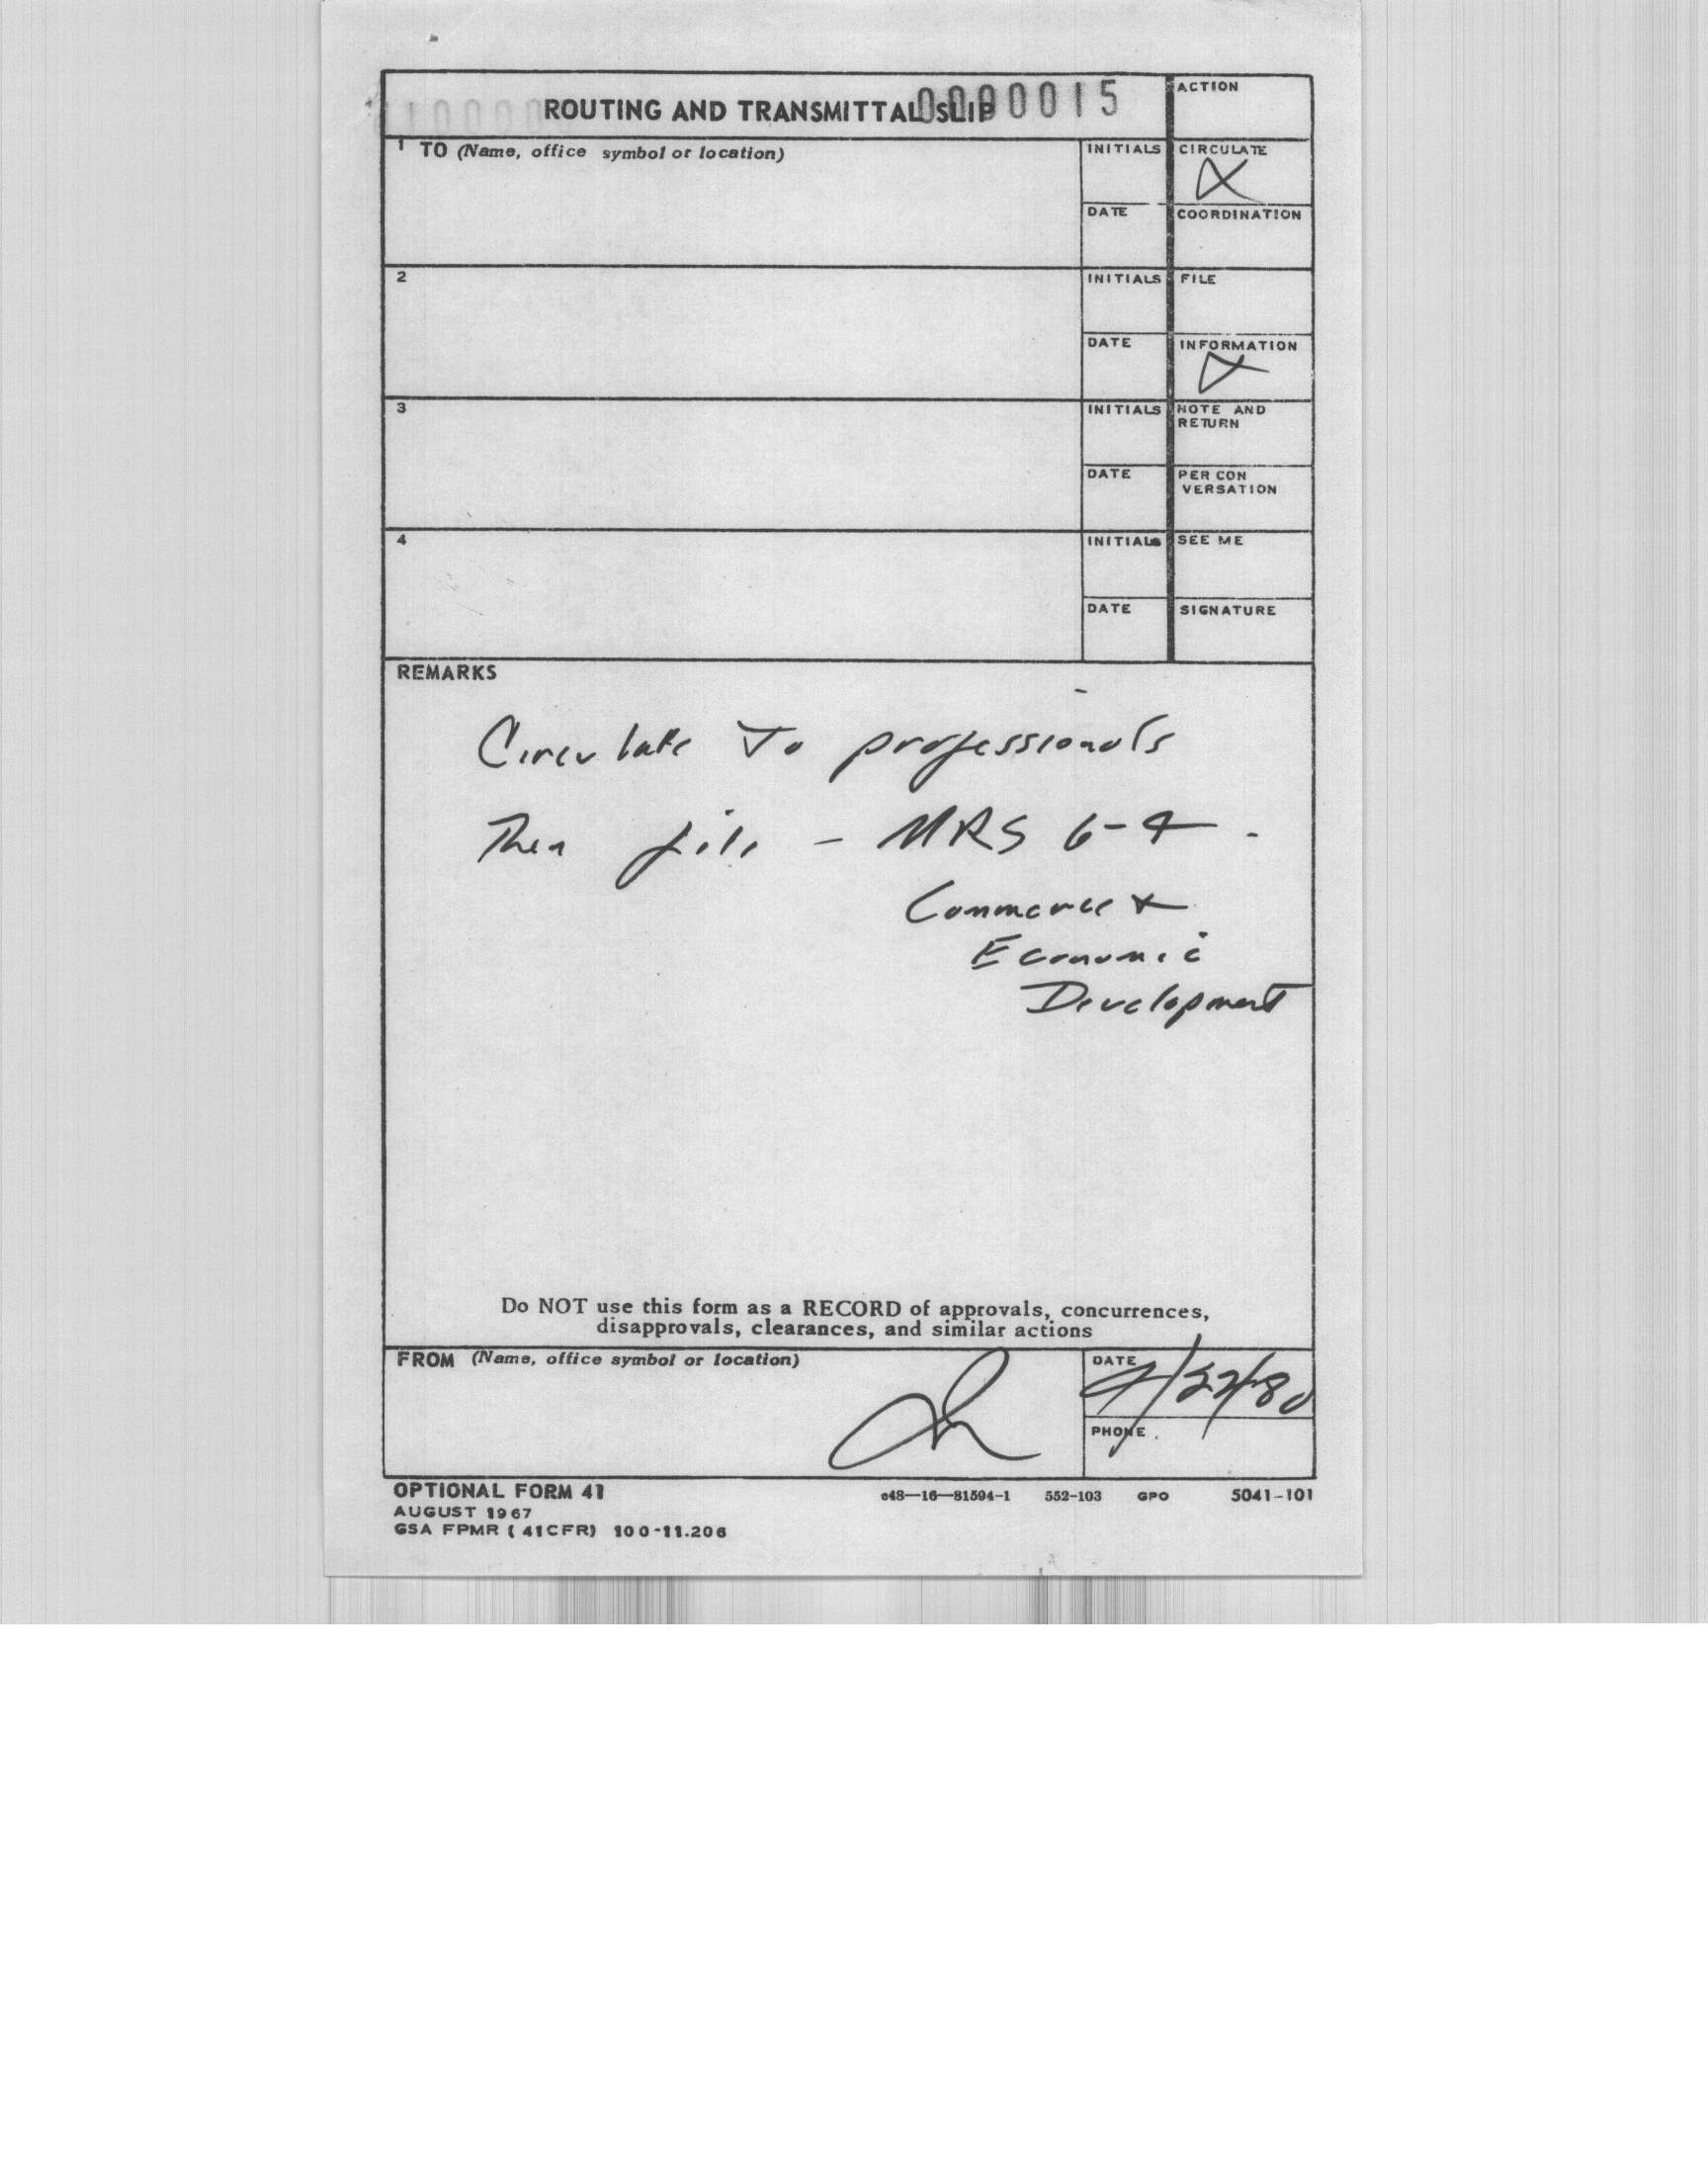 ROUTING AND TRANSMITTAL SLIP 0000015
ACTION
1 TO (Name, office symbol or location)
INITIALS
CIRCULATE
X
DATE
COORDINATION
2
INITIALS
FILE
DATE
INFORMATION
X
3
INITIALS
NOTE AND
RETURN
DATE
PER CON
VERSATION
4
INITIALS
SEE ME
DATE
SIGNATURE
REMARKS
Circulate To professionals
Then file - MRS 6-4.
Commerce &
Economic
Development
Do NOT use this form as a RECORD of approvals, concurrences,
disapprovals, clearances, and similar actions
FROM (Name, office symbol or location)
DATE
4/22/80
PHONE
OPTIONAL FORM 41
c48—16—81594-1 552-103 GPO 5041-101
AUGUST 1967
GSA FPMR (41CFR) 100-11.206